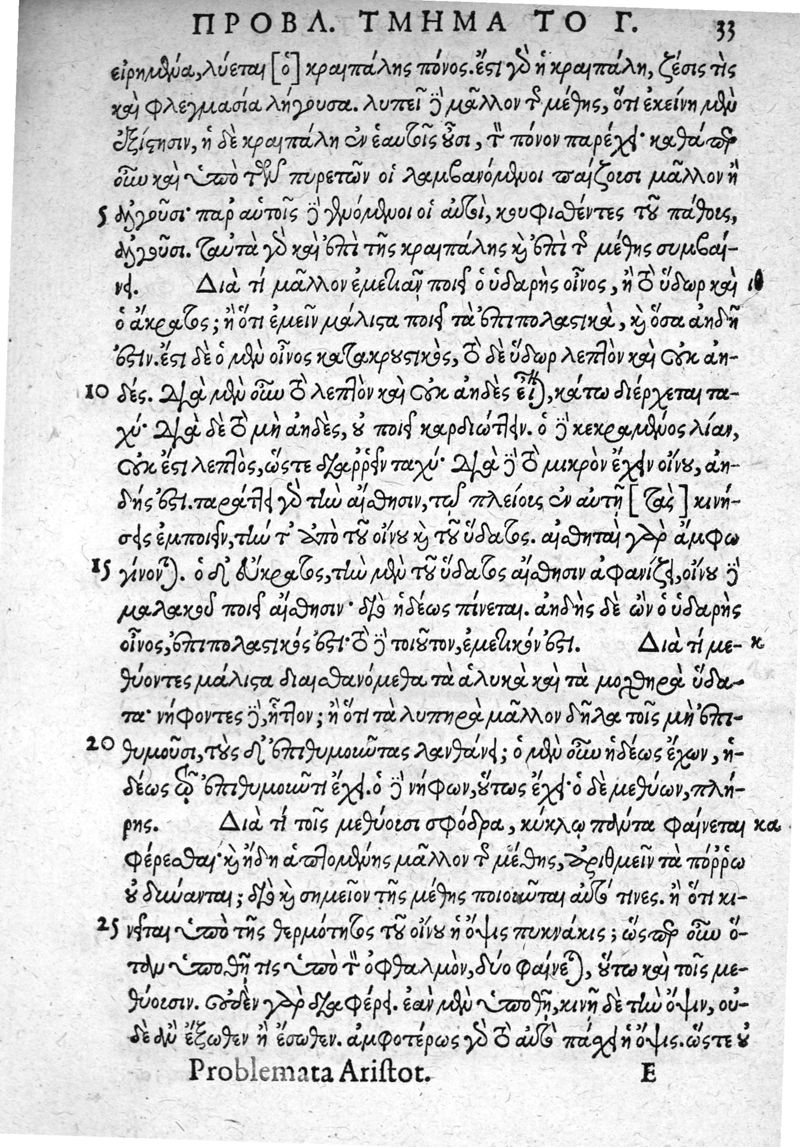 ΠΡΟΒΛ. ΤΜΗΜΑ ΤΟ Γ. 33
εἰρημένα, λύεται [ὁ] κραιπάλης πόνος. ἔστι γὸ ἡ κραιπάλη, ζέσις τὶς
καὶ φλεγμασία λήγουσα. λυπεῖ δὲ μᾶλλον τῆς μέθης, ὅτι ἐκείνη μὲν
ἐξίστησιν, ἡ δὲ κραιπάλη ἐν ἑαυτοῖς οὖσι, τὸν πόνον παρέχει· καθάπερ
οὖν καὶ ὑπὸ τῶν πυρετῶν οἱ λαμβανόμενοι παίζουσι μᾶλλον ἢ
5 ἀλγοῦσι· παρ αὑτοῖς δὲ γενόμενοι οἱ αὐτοὶ, κουφισθέντες τοῦ πάθους,
ἀλγοῦσι. ταῦτα γὸ καὶ ἐπὶ τῆς κραιπάλης καὶ ἐπὶ τῆς μέθης συμβαί-
νει. Διὰ τί μᾶλλον ἐμετιᾶν ποιεῖ ὁ ὑδαρὴς οἶνος, ἢ τὸ ὕδωρ καὶ ιθ
ὁ ἄκρατος; ἢ ὅτι ἐμεῖν μάλιστα ποιεῖ τὰ ἐπιπολαστικὰ, καὶ ὅσα ἀηδῆ
ἐστιν. ἔστι δὲ ὁ μὲν οἶνος κατακρουστικὸς, τὸ δὲ ὕδωρ λεπτὸν καὶ οὐκ ἀη-
10 δές. διὰ μὲν οὖν τὸ λεπτὸν καὶ οὐκ ἀηδὲς εἶναι, κάτω διέρχεται τα-
χύ· διὰ δὲ τὸ μὴ ἀηδὲς, οὐ ποιεῖ καρδιώττειν. ὁ δὲ κεκραμένος λίαν,
οὐκ ἔστι λεπτὸς, ὥστε διαῤῥεῖν ταχύ· διὰ δὲ τὸ μικρὸν ἔχειν οἴνου, ἀη-
δής ἐστι. ταράττει γὸ τὴν αἴσθησιν, τῷ πλείους ἐν αὐτῇ [τὰς] κινή-
σεις ἐμποιεῖν, τήν τ' ἀπὸ τοῦ οἴνου καὶ τοῦ ὕδατος. αἰσθηταὶ γὰρ ἄμφω
15 γίνονται. ὁ δ' εὔκρατος, τὴν μὲν τοῦ ὕδατος αἴσθησιν ἀφανίζει, οἴνου δὲ
μαλακοῦ ποιεῖ αἴσθησιν· διὸ ἡδέως πίνεται. ἀηδὴς δὲ ὢν ὁ ὑδαρὴς
οἶνος, ἐπιπολαστικός ἐστι· τὸ δὲ τοιοῦτον, ἐμετικόν ἐστι. Διὰ τί με- κ
θύοντες μάλιστα διαισθανόμεθα τὰ ἁλυκὰ καὶ τὰ μοχθηρὰ ὕδα-
τα· νήφοντες δὲ, ἧττον; ἢ ὅτι τὰ λυπηρὰ μᾶλλον δῆλα τοῖς μὴ ἐπι-
20 θυμοῦσι, τοὺς δ' ἐπιθυμοῦντας λανθάνει; ὁ μὲν οὖν ἡδέως ἔχων, ἡ-
δέως τῷ ἐπιθυμοῦντι ἔχει. ὁ δὲ νήφων, οὕτως ἔχει· ὁ δὲ μεθύων, πλή-
ρης. Διὰ τί τοῖς μεθύουσι σφόδρα, κύκλῳ πάντα φαίνεται κα
φέρεσθαι· καὶ ἤδη ἁπτομένης μᾶλλον τῆς μέθης, ἀριθμεῖν τὰ πόῤῥω
οὐ δύνανται; διὸ καὶ σημεῖον τῆς μέθης ποιοῦνται αὐτό τινες. ἢ ὅτι κι-
25 νεῖται ὑπὸ τῆς θερμότητος τοῦ οἴνου ἡ ὄψις πυκνάκις; ὥσπερ οὖν ὅ-
ταν ὑποθῇ τις ὑπὸ τὸν ὀφθαλμὸν, δύο φαίνεται, οὕτω καὶ τοῖς με-
θύουσιν. οὐδὲν γὰρ διαφέρει. ἐὰν μὲν ὑποθῇ, κινῇ δὲ τὴν ὄψιν, οὐ-
δὲ ἂν ἔξωθεν ἢ ἔσωθεν. ἀμφοτέρως γὸ τὸ αὐτὸ πάσχει ἡ ὄψις. ὥστε οὐ
Problemata Aristot. E